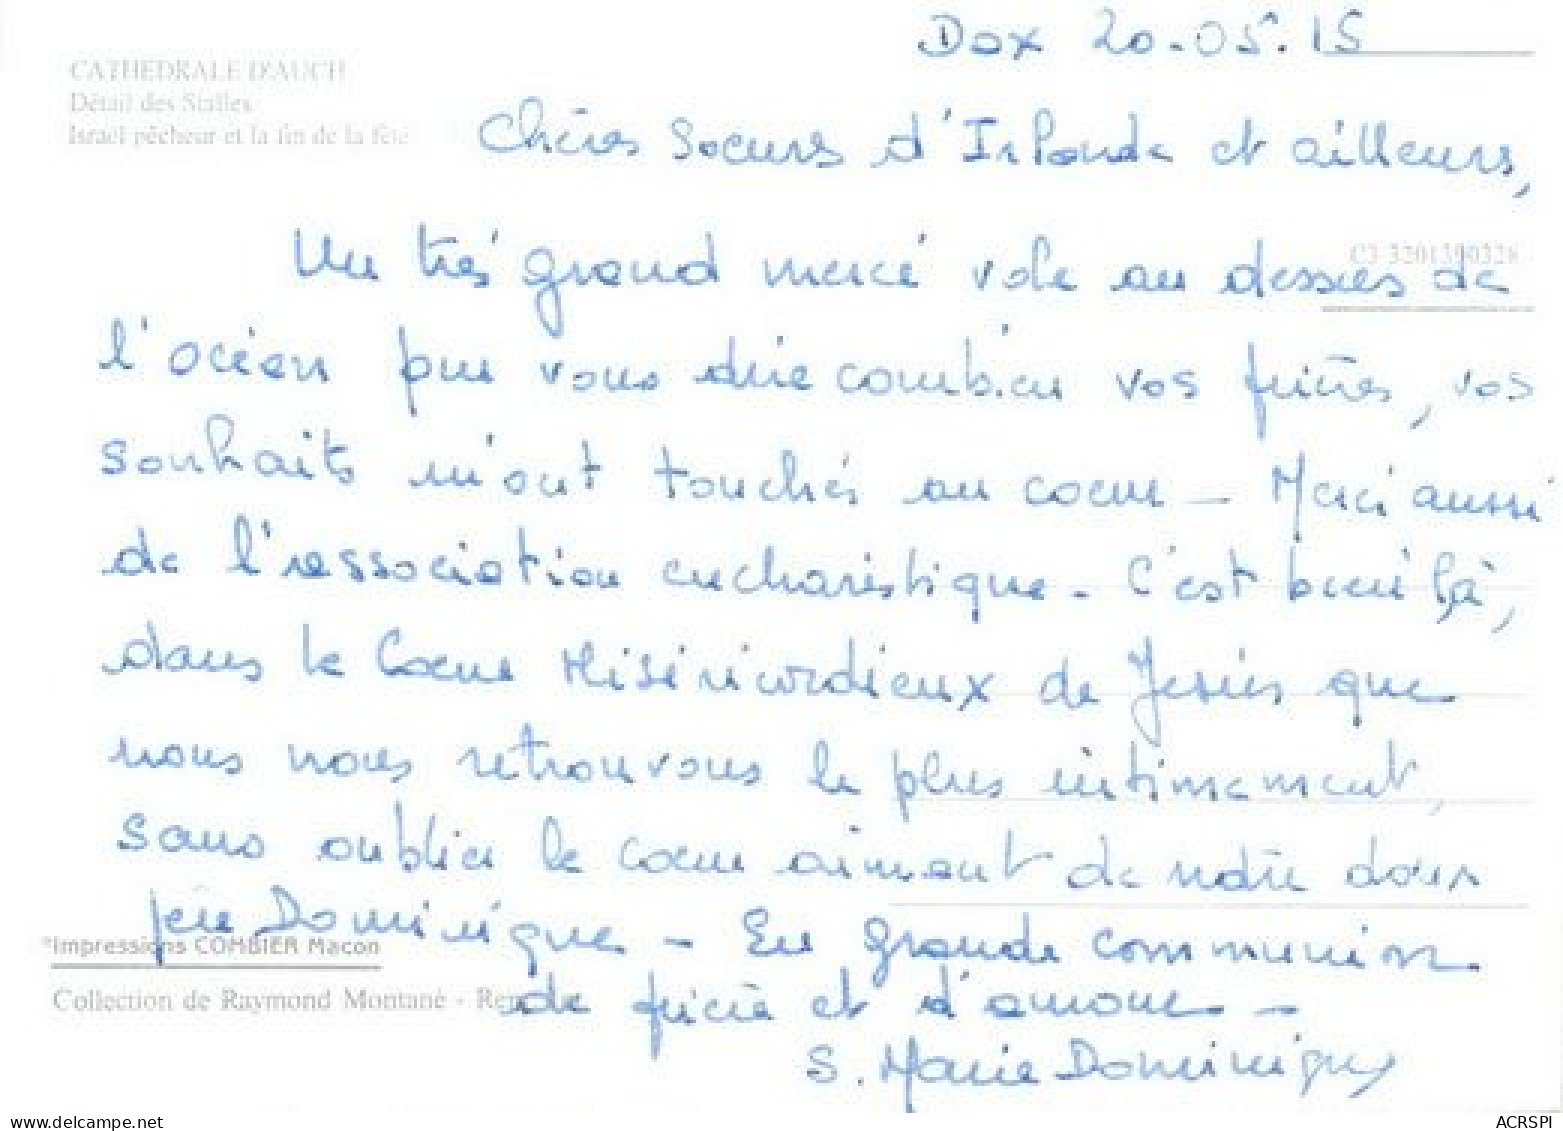 Dax 20.05.15
CATHEDRALE D'AUCH
Détail des Stalles
Israël pêcheur et la fin de la fête
Chères Soeurs d'Irlande et ailleurs,
C3 3201390328
Un très grand merci vole au dessus de
l'océan pour vous dire combien vos prières, vos
souhaits m'ont touchés au coeur - Merci aussi
de l'association eucharistique - C'est bien là,
dans le Coeur Miséricordieux de Jésus que
nous nous retrouvons le plus intimement,
sans oublier le coeur aimant de notre doux
père Dominique - En grande communion
*Impressions COMBIER Macon
Collection de Raymond Montané - 
de prière et d'amour -
S. Marie Dominique
www.delcampe.net
ACRSPI